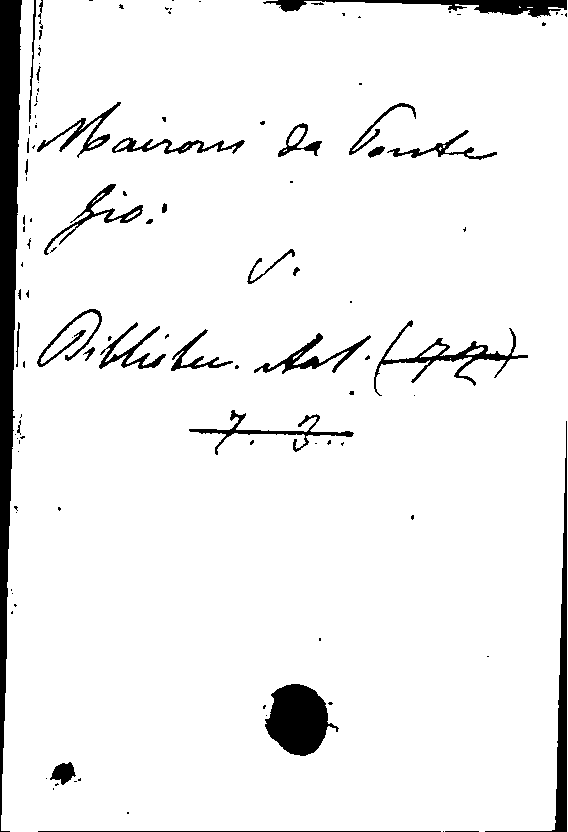 Maironi da Ponte
Gio:
V.
Bibliotec. Ital. (77)
7. 3.